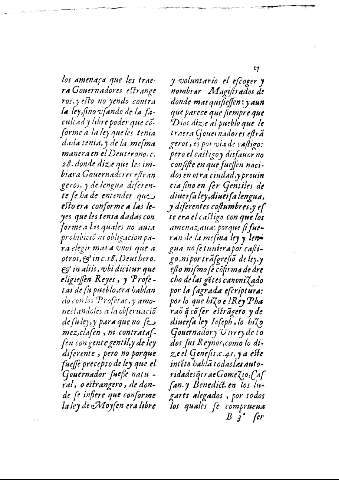 27
los amenaça que les trae-
ra Gouernadores estrange
ros, y esto no yendo contra
la ley, sino vsando de la fa-
cultad y libre poder que cõ-
forme a la ley que les tenia
dada tenia, y de la mesma
manera en el Deuterono. c.
28. donde dize que les im-
biara Gouernadores estran
geros, y de lengua diferen-
te se ha de entender que
esto era conforme a las le-
yes que les tenia dadas con
forme a las quales no auia
prohibiciõ ni obligacion pa-
ra elegir mas a vnos que a
otros, & in c. 18. Deuthero.
& in alijs, vbi dicitur que
eligiessen Reyes, y Profe-
tas de su pueblo, està hablan
do con los Profetas, y amo-
nestandoles a la obseruaciõ
de su ley, y para que no se
mezclassen, ni contratas-
sen con gente gentil, y de ley
diferente, pero no porque
fuesse precepto de ley que el
Gouernador fuesse natu-
ral, o estrangero, de don-
de se infiere que conforme
la ley de Moysen era libre
y voluntario el escoger y
nombrar Magistrados de
donde mas quisiessen: y aun
que parece que siempre que
Dios dize al pueblo que le
traera Gouernadores estrã
geros, es por via de castigo:
pero el castigo y disfauor no
consiste en que fuessen naci-
dos en otra ciudad, y prouin
cia sino en ser Gentiles de
diuersa ley, diuersa lengua,
y diferentes costumbres, y es
te era el castigo con que los
amenazaua: porque si fue-
ran de la mesma ley y lengua
no se tuuiera por casti-
go, ni por trãsgresiõ de ley, y
esto mismo se cõfirma de dre
cho de las gẽtes canonizado
por la sagrada escriptura:
por lo que hizo el Rey Pha
raõ q̃ cõ ser estrãgero y de
diuersa ley Ioseph, lo hizo
Gouernador y Virrey de to
dos sus Reynos, como lo di-
ze el Genesis. c. 41. y a este
intẽto hablã todas las auto-
ridades q̃ trae Gomezio, Cas
san. y Benedict. en los lu-
gares alegados, por todos
los quales se comprueua
B 3 ser